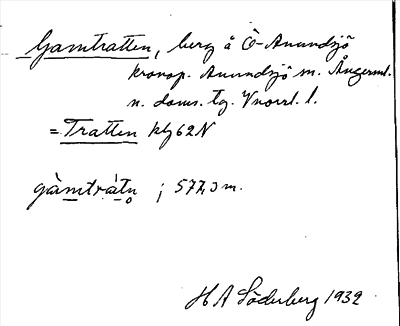 Gamtratten, berg å Ö-Anundsjö
kronop. Anundsjö sn. Ångerml.
n. doms. tg. Vnorrl. l.
= Tratten kbl 62 N
gàmtràtn̥ ; 577,3 m.
H A Söderberg 1932